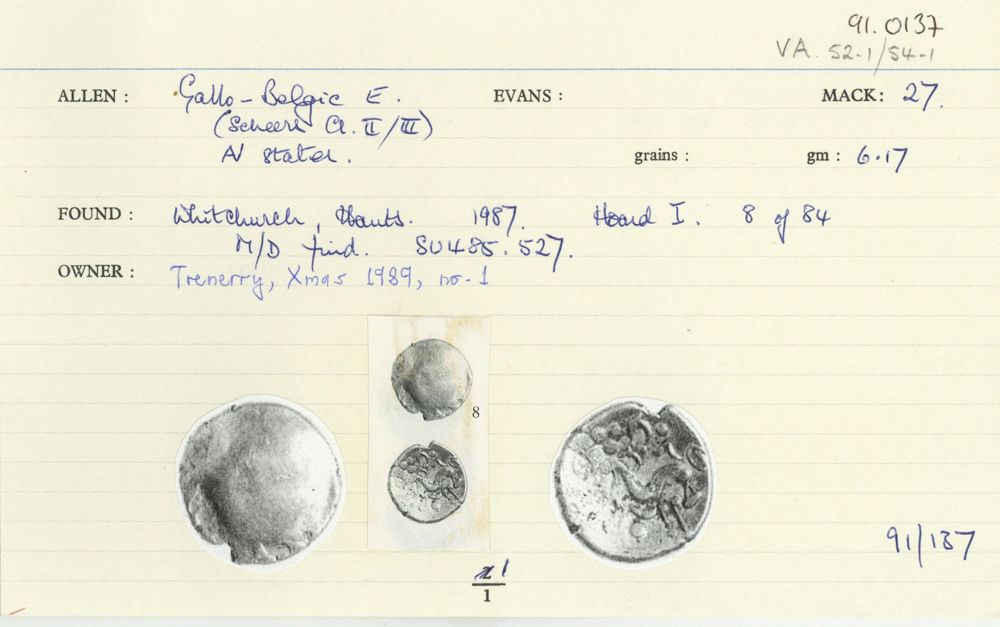 91.0137
VA. 52-1/54-1
ALLEN : Gallo-Belgic E. EVANS : MACK: 27.
(Scheers Cl. II/III)
AV stater. grains : gm : 6.17
FOUND : Whitchurch, Hants. 1987. Hoard I. 8 of 84
M/D find. SU485.527.
OWNER : Trenerry, Xmas 1989, no. 1
8
91/137
1
1